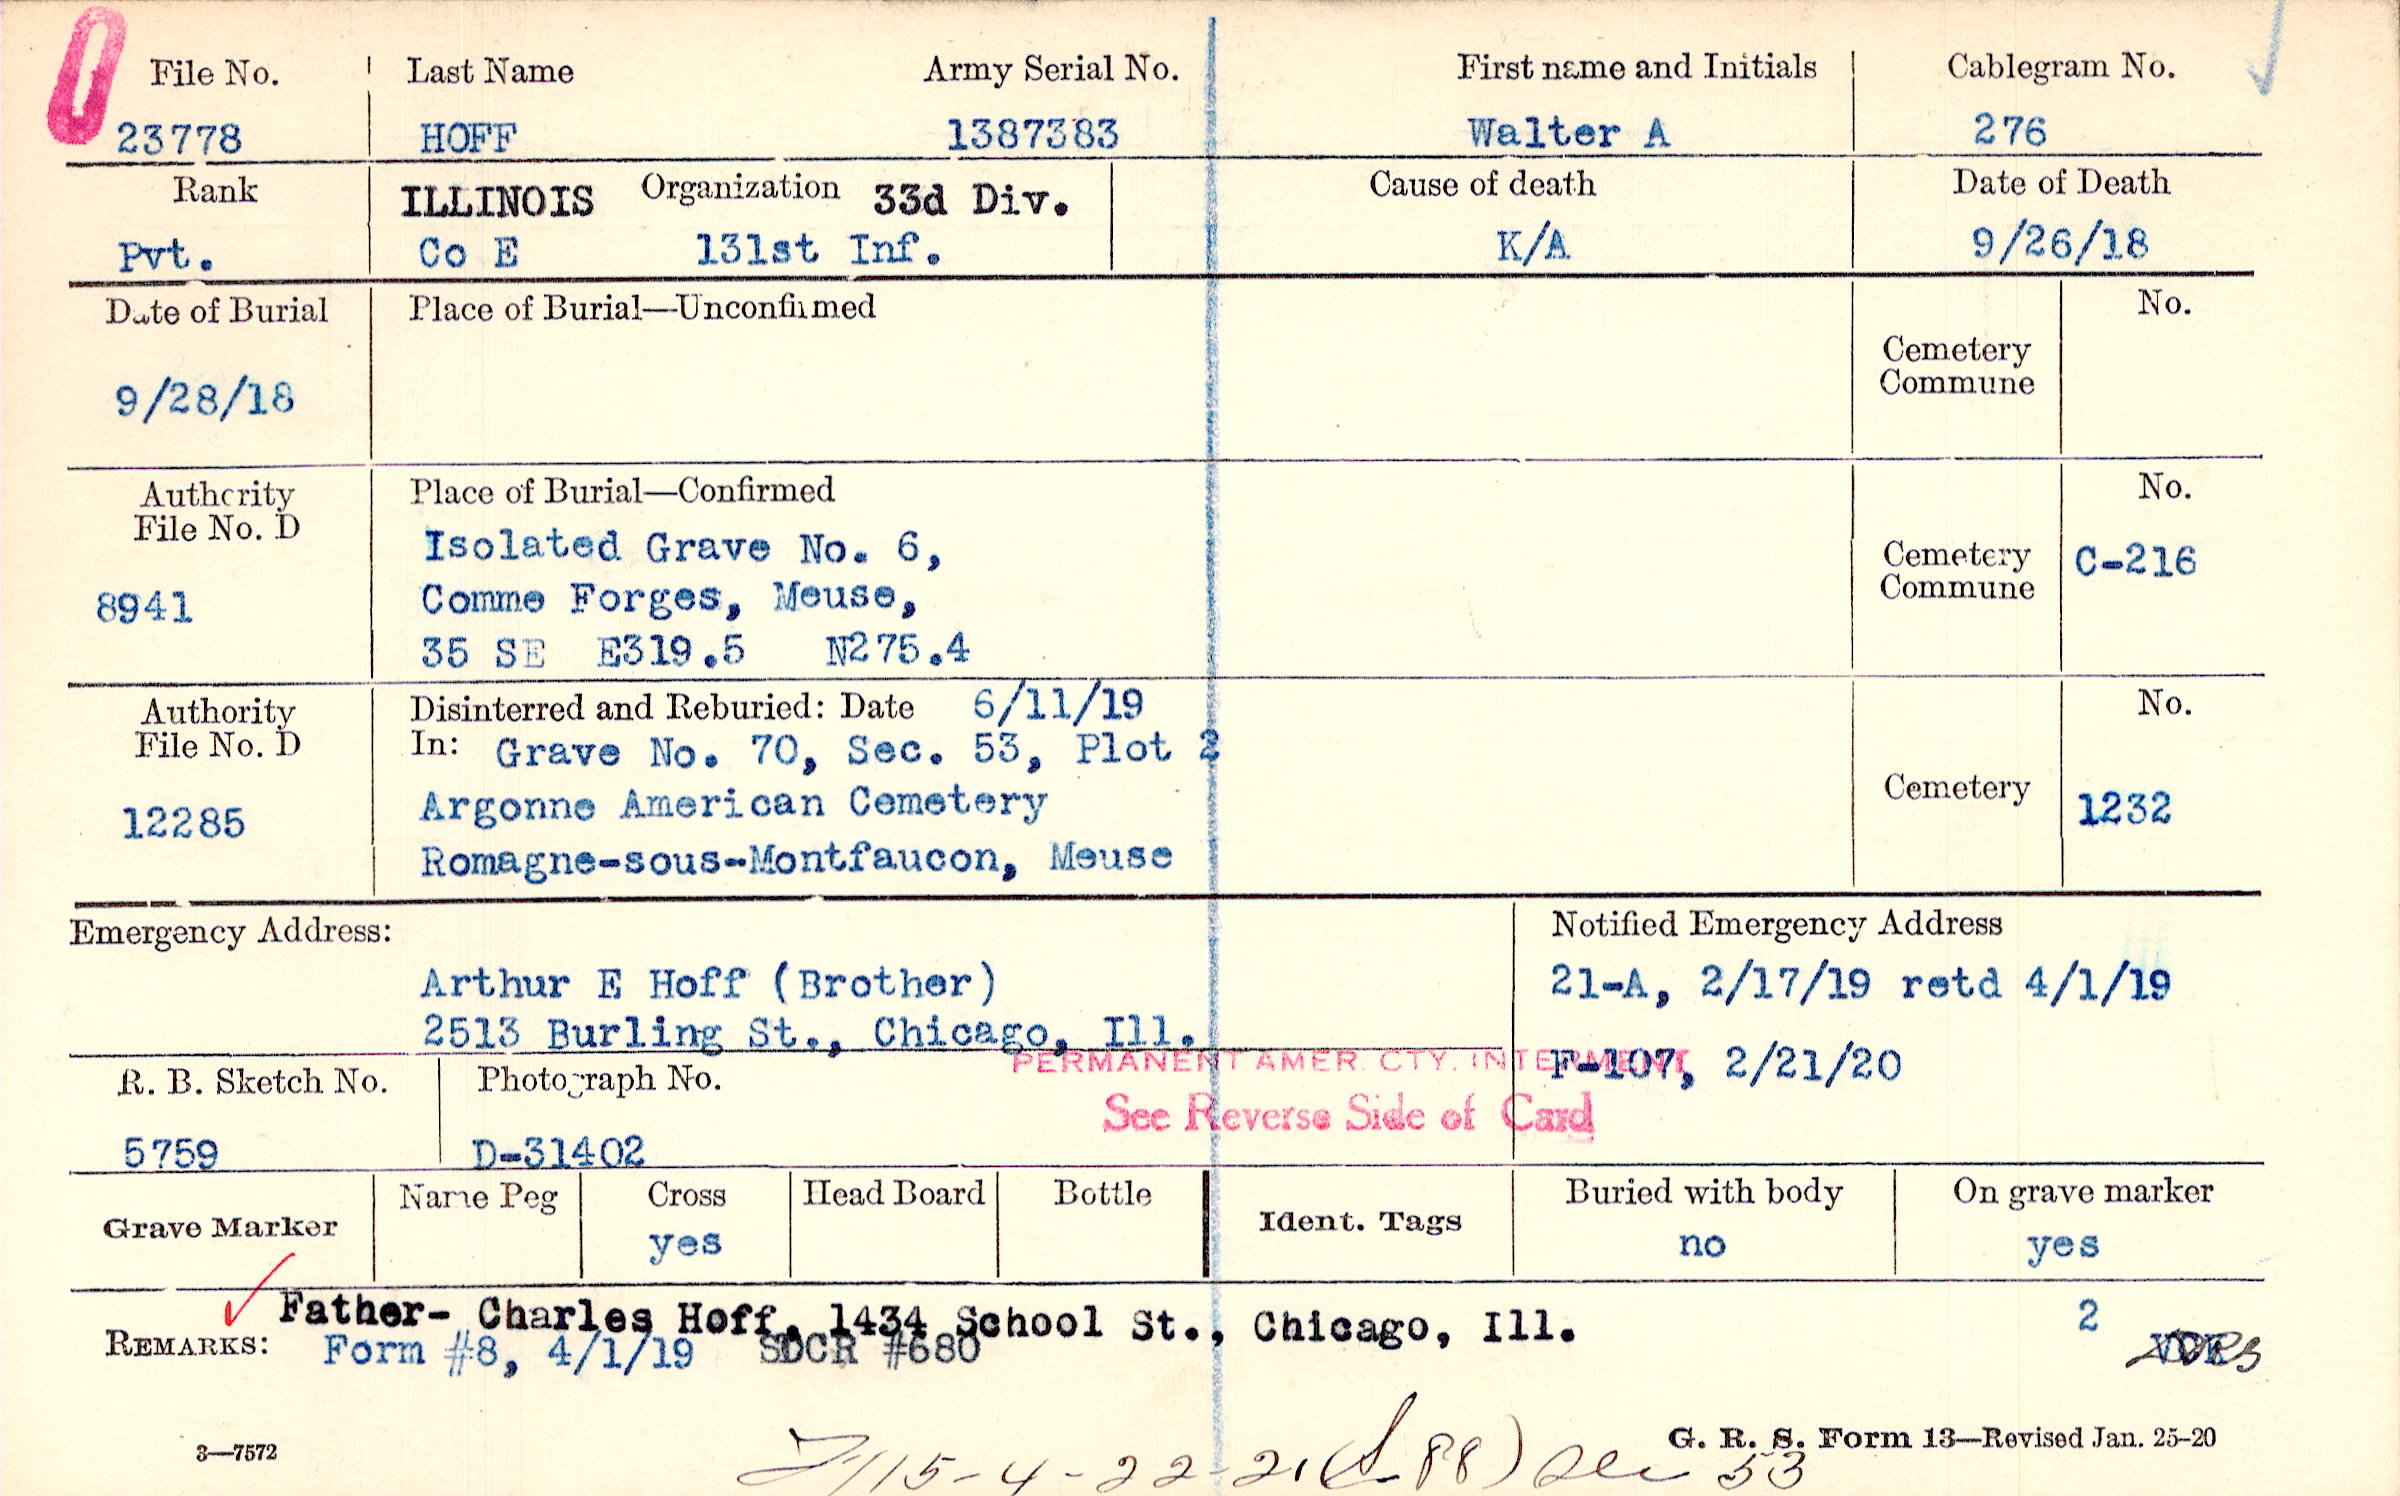 File No. Last Name Army Serial No. First name and Initials Cablegram No.
23778 HOFF 1387383 Walter A 276
Rank ILLINOIS Organization 33d Div. Cause of death Date of Death
Pvt. Co E 131st Inf. K/A 9/26/18
Date of Burial Place of Burial—Unconfirmed No.
Cemetery
Commune
9/28/18
Authority Place of Burial—Confirmed No.
File No. D
Isolated Grave No. 6,
Cemetery C-216
Commune
8941 Comme Forges, Meuse,
35 SE E319.5 N275.4
Authority Disinterred and Reburied: Date 6/11/19 No.
File No. D In: Grave No. 70, Sec. 53, Plot 2
Cemetery 1232
12285 Argonne American Cemetery
Romagne-sous-Montfaucon, Meuse
Emergency Address: Notified Emergency Address
Arthur E Hoff (Brother) 21-A, 2/17/19 retd 4/1/19
2513 Burling St., Chicago, Ill.
PERMANENT AMER. CTY. INTERMENT
F-107, 2/21/20
R. B. Sketch No. Photograph No.
See Reverse Side of Card
5759 D-31402
Grave Marker Name Peg Cross Head Board Bottle Ident. Tags Buried with body On grave marker
yes no yes
Father- Charles Hoff, 1434 School St., Chicago, Ill. 2
REMARKS: Form #8, 4/1/19 SDCR #680
3—7572 G. R. S. Form 13—Revised Jan. 25-20
115-4-22-21 88) Sec 53